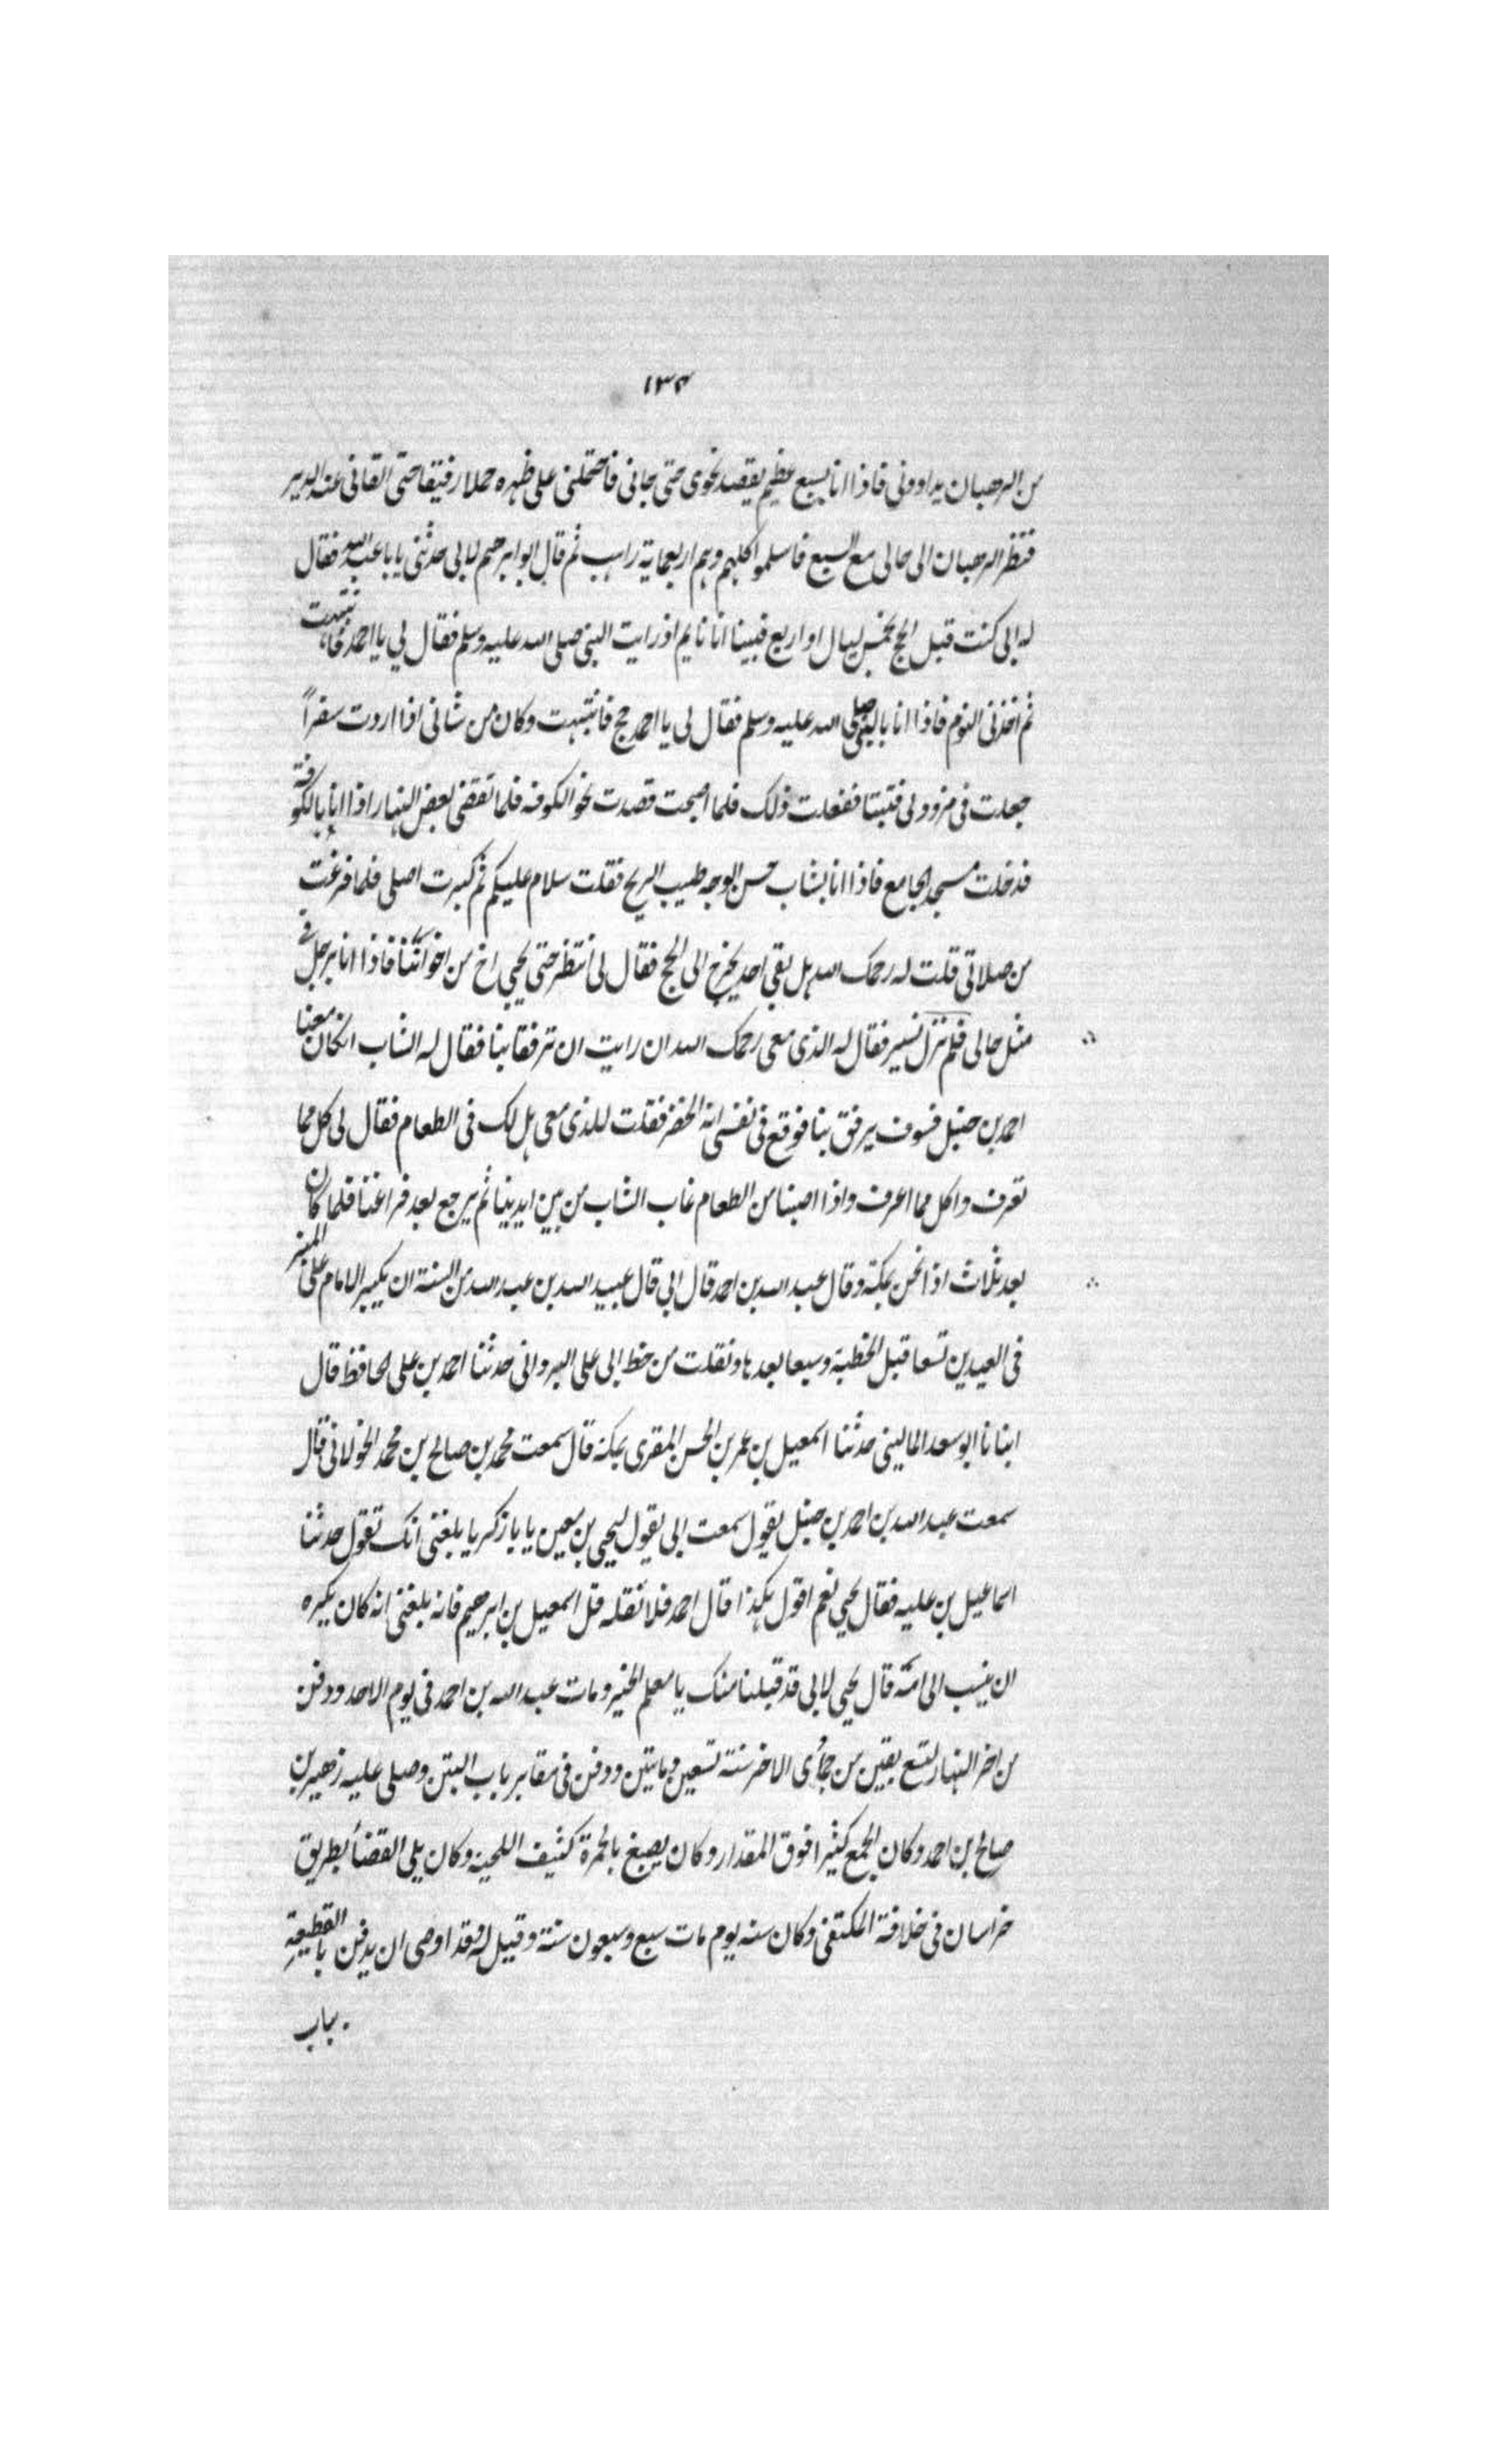 ١٣٤
من الرهبان يداووني فاذا انا بسبع عظيم يقصد نحوى حتى جاني فاحتملني على ظهره حملا رفيقا حتى القاني عند الدير
فنظر الرهبان الى حالى مع السبع فاسلموا كلهم وهم اربعماية راهب ثم قال ابو ابرهيم لابى حدثنى يابا عبد الله فقال
له ابى كنت قبل الحج بخمس ليال او اربع فبينا انا نايم اذ رايت النبى صلى الله عليه وسلم فقال لى يا احمد حج فانتبهت
ثم اخذنى النوم فاذا انا بالنبى صلى الله عليه وسلم فقال لى يا احمد حج فانتبهت وكان من شانى اذا اردت سفراً
جعلت فى مزود لى فتيتا ففعلت ذلك فلما اصبحت قصدت نحو الكوفه فلما تقضى بعض النهار اذا انا بالكوفة
فدخلت مسجد الجامع فاذا انا بشاب حسن الوجه طيب الريح فقلت سلام عليكم ثم كبرت اصلى فلما فرغت
من صلاتى قلت له رحمك الله هل بقى احد يخرج الى الحج فقال لى انتظر حتى يجيى اخ من اخواننا فاذا انا برجل فى
مثل حالى فلم نزل نسير فقال له الذى معى رحمك الله ان رايت ان ترفقا بنا فقال له الشاب ان كان معنا
احمد بن حنبل فسوف يرفق بنا فوقع فى نفسى انه الخضر فقلت للذى معى هل لك فى الطعام فقال لى كل مما
تعرف واكل مما اعرف واذا اصبنا من الطعام غاب الشاب من بين ايدينا ثم يرجع بعد فراغنا فلما كان
بعد ثلاث اذا نحن بمكة وقال عبد الله بن احمد قال ابى قال عبيد الله بن عبد الله من السنة ان يكبر الامام على المنبر
فى العيدين تسعا قبل الخطبة وسبعا بعدها ونقلت من خط ابى على البردانى حدثنا احمد بن على الحافظ قال
انبانا ابو سعد المالينى حدثنا اسمعيل بن عمر بن الحسن المقرى بمكة قال سمعت محمد بن صالح بن محمد الخولانى قال
سمعت عبد الله بن احمد بن حنبل يقول سمعت ابى يقول ليحيى بن معين يا با زكريا بلغنى انك تقول حدثنا
اسماعيل بن عليه فقال يحيى نعم اقول هكذا قال احمد فلا تقله قل اسمعيل بن ابرهيم فانه بلغنى انه كان يكره
ان ينسب الى امه قال يحيى لابى قد قبلنا منك يا معلم الخير ومات عبد الله بن احمد فى يوم الاحد ودفن
من اخر النهار لتسع بقين من جمادى الاخر سنة تسعين وماتين ودفن فى مقابر باب التبن وصلى عليه زهير بن
صالح بن احمد وكان الجمع كثيرا فوق المقدار وكان يصبغ بالحمرة كثيف اللحية وكان يلى القضأ بطريق
خراسان فى خلافة المكتفى وكان سنه يوم مات سبع وسبعون سنة وقيل له فقد اوصى ان يدفن بالقطيعة
بباب